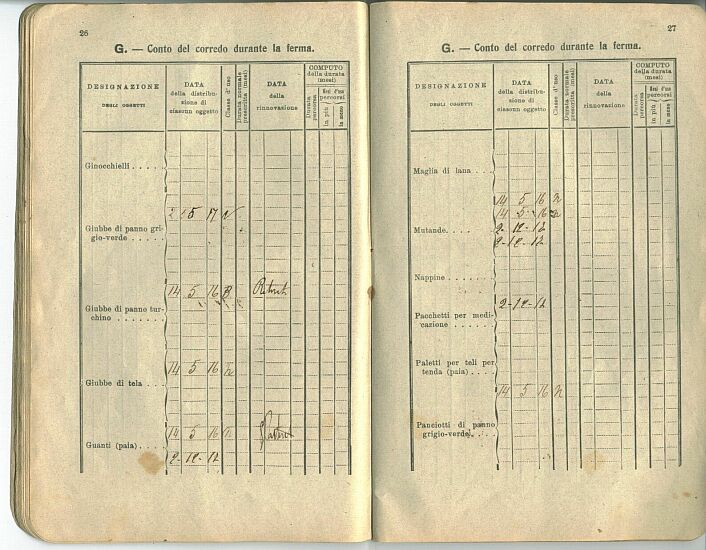 26
G. — Conto del corredo durante la ferma.
DESIGNAZIONE
DEGLI OGGETTI
DATA
della distribu-
zione di
ciascun oggetto
Classe d'uso
Durata normale
prescritta (mesi)
DATA
della
rinnovazione
COMPUTO
della durata
(mesi)
Durata
percorsa
Mesi d'uso
percorsi
in più
in meno
Ginocchielli . . . .
Giubbe di panno gri-
gio-verde . . . . . .
5 17
Giubbe di panno tur-
chino . . . . . . .
14 5 16
Giubbe di tela . . .
14 5 16
Guanti (paia) . . . .
14 5 16
2-12-12
27
G. — Conto del corredo durante la ferma.
DESIGNAZIONE
DEGLI OGGETTI
DATA
della distribu-
zione di
ciascun oggetto
Classe d'uso
Durata normale
prescritta (mesi)
DATA
della
rinnovazione
COMPUTO
della durata
(mesi)
Durata
percorsa
Mesi d'uso
percorsi
in più
in meno
Maglia di lana . . .
14 5 16
14 5 16
Mutande. . . . .
2-12-12
2-12-12
Nappine . . . . .
2-12-12
Pacchetti per medi-
cazione . . . . . .
Paletti per teli per
tenda (paia) . . . .
14 5 16
Panciotti di panno
grigio-verde. . . .